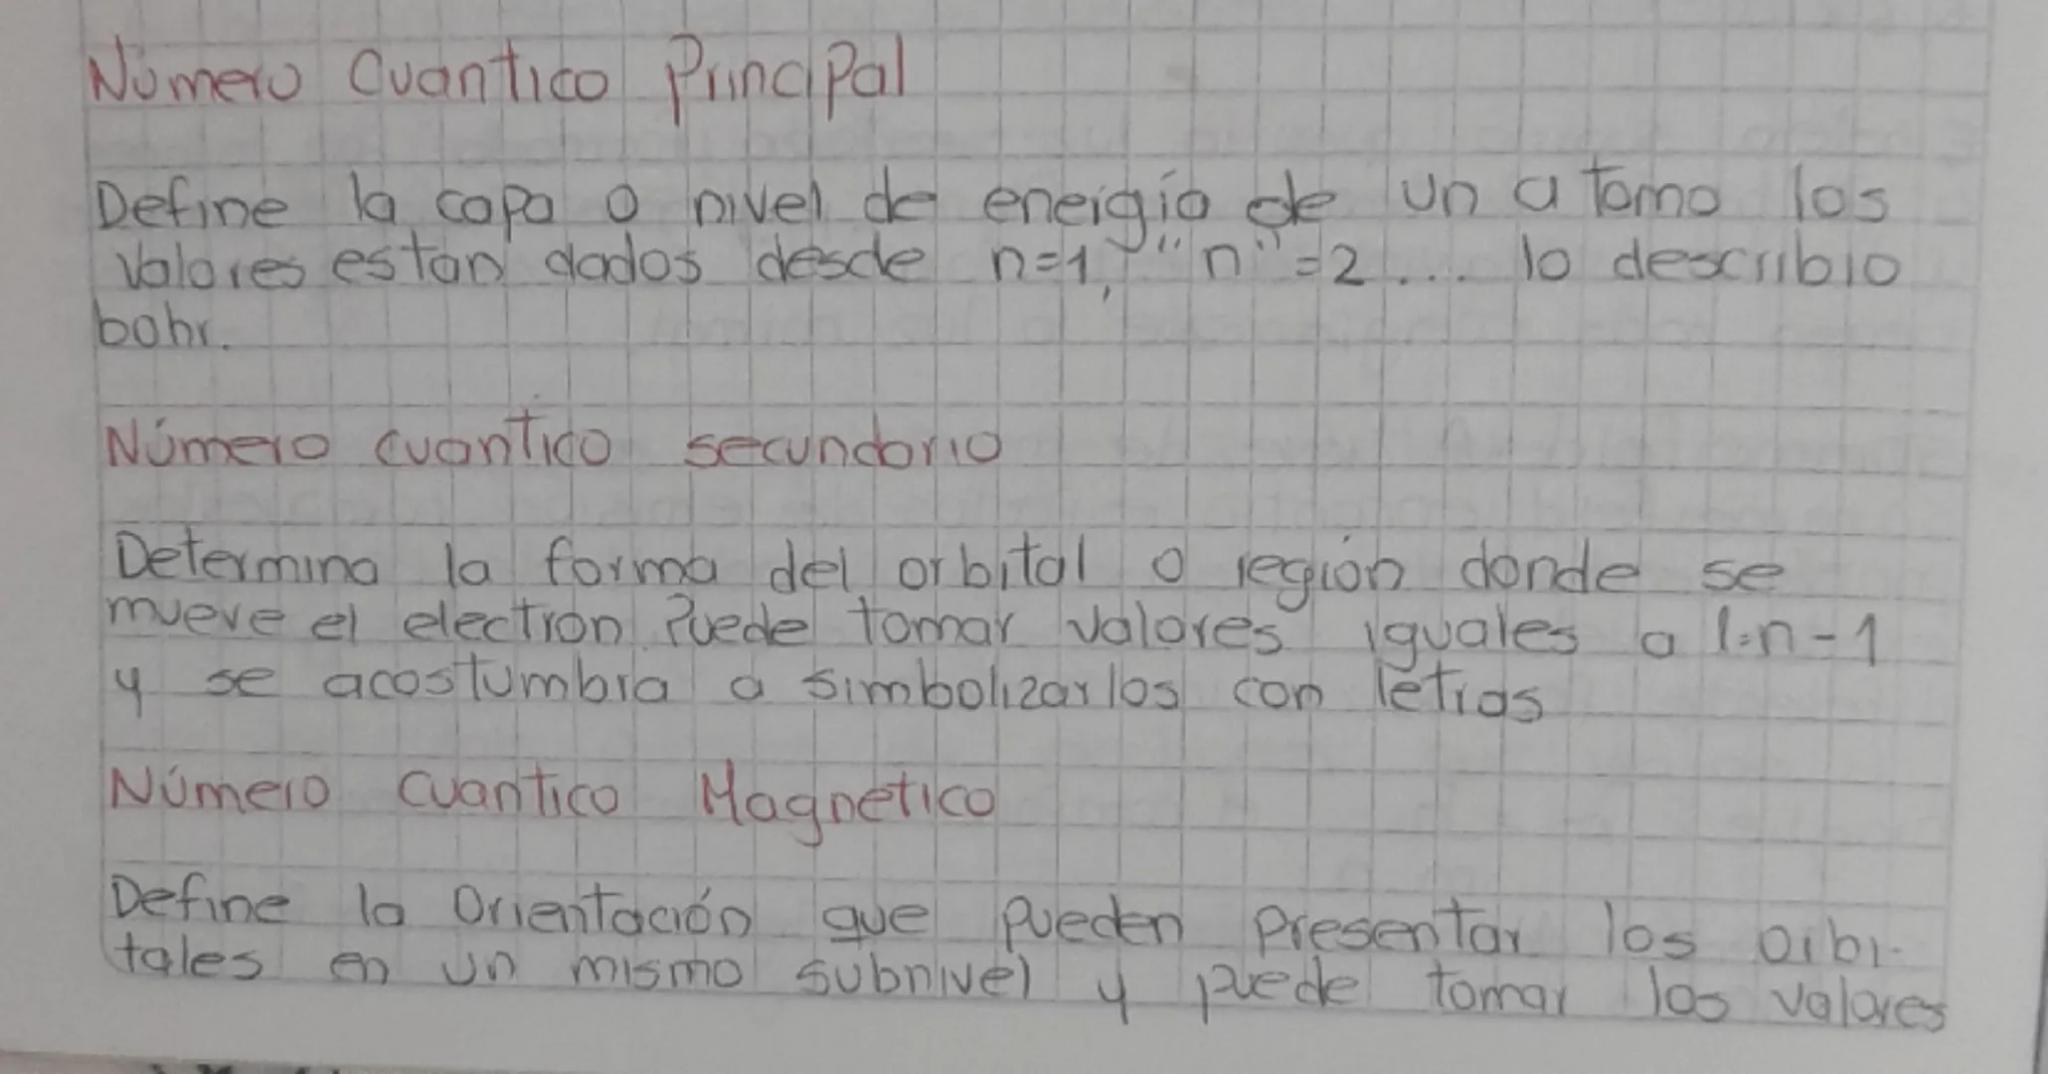 Número Cuantico Principal
Define la capa o nivel de energía de un atomo los
valores estan dados desde n=1, "n"=2.... lo describio
bohr.
Número cuantico secundario
Determina la forma del orbital o región donde se
mueve el electron. Puede tomar valores iguales a l=n-1
y se acostumbra a simbolizarlos con letras
Número Cuantico Magnetico
Define la Orientación que pueden presentar los orbi-
tales en un mismo subnivel y puede tomar los valores